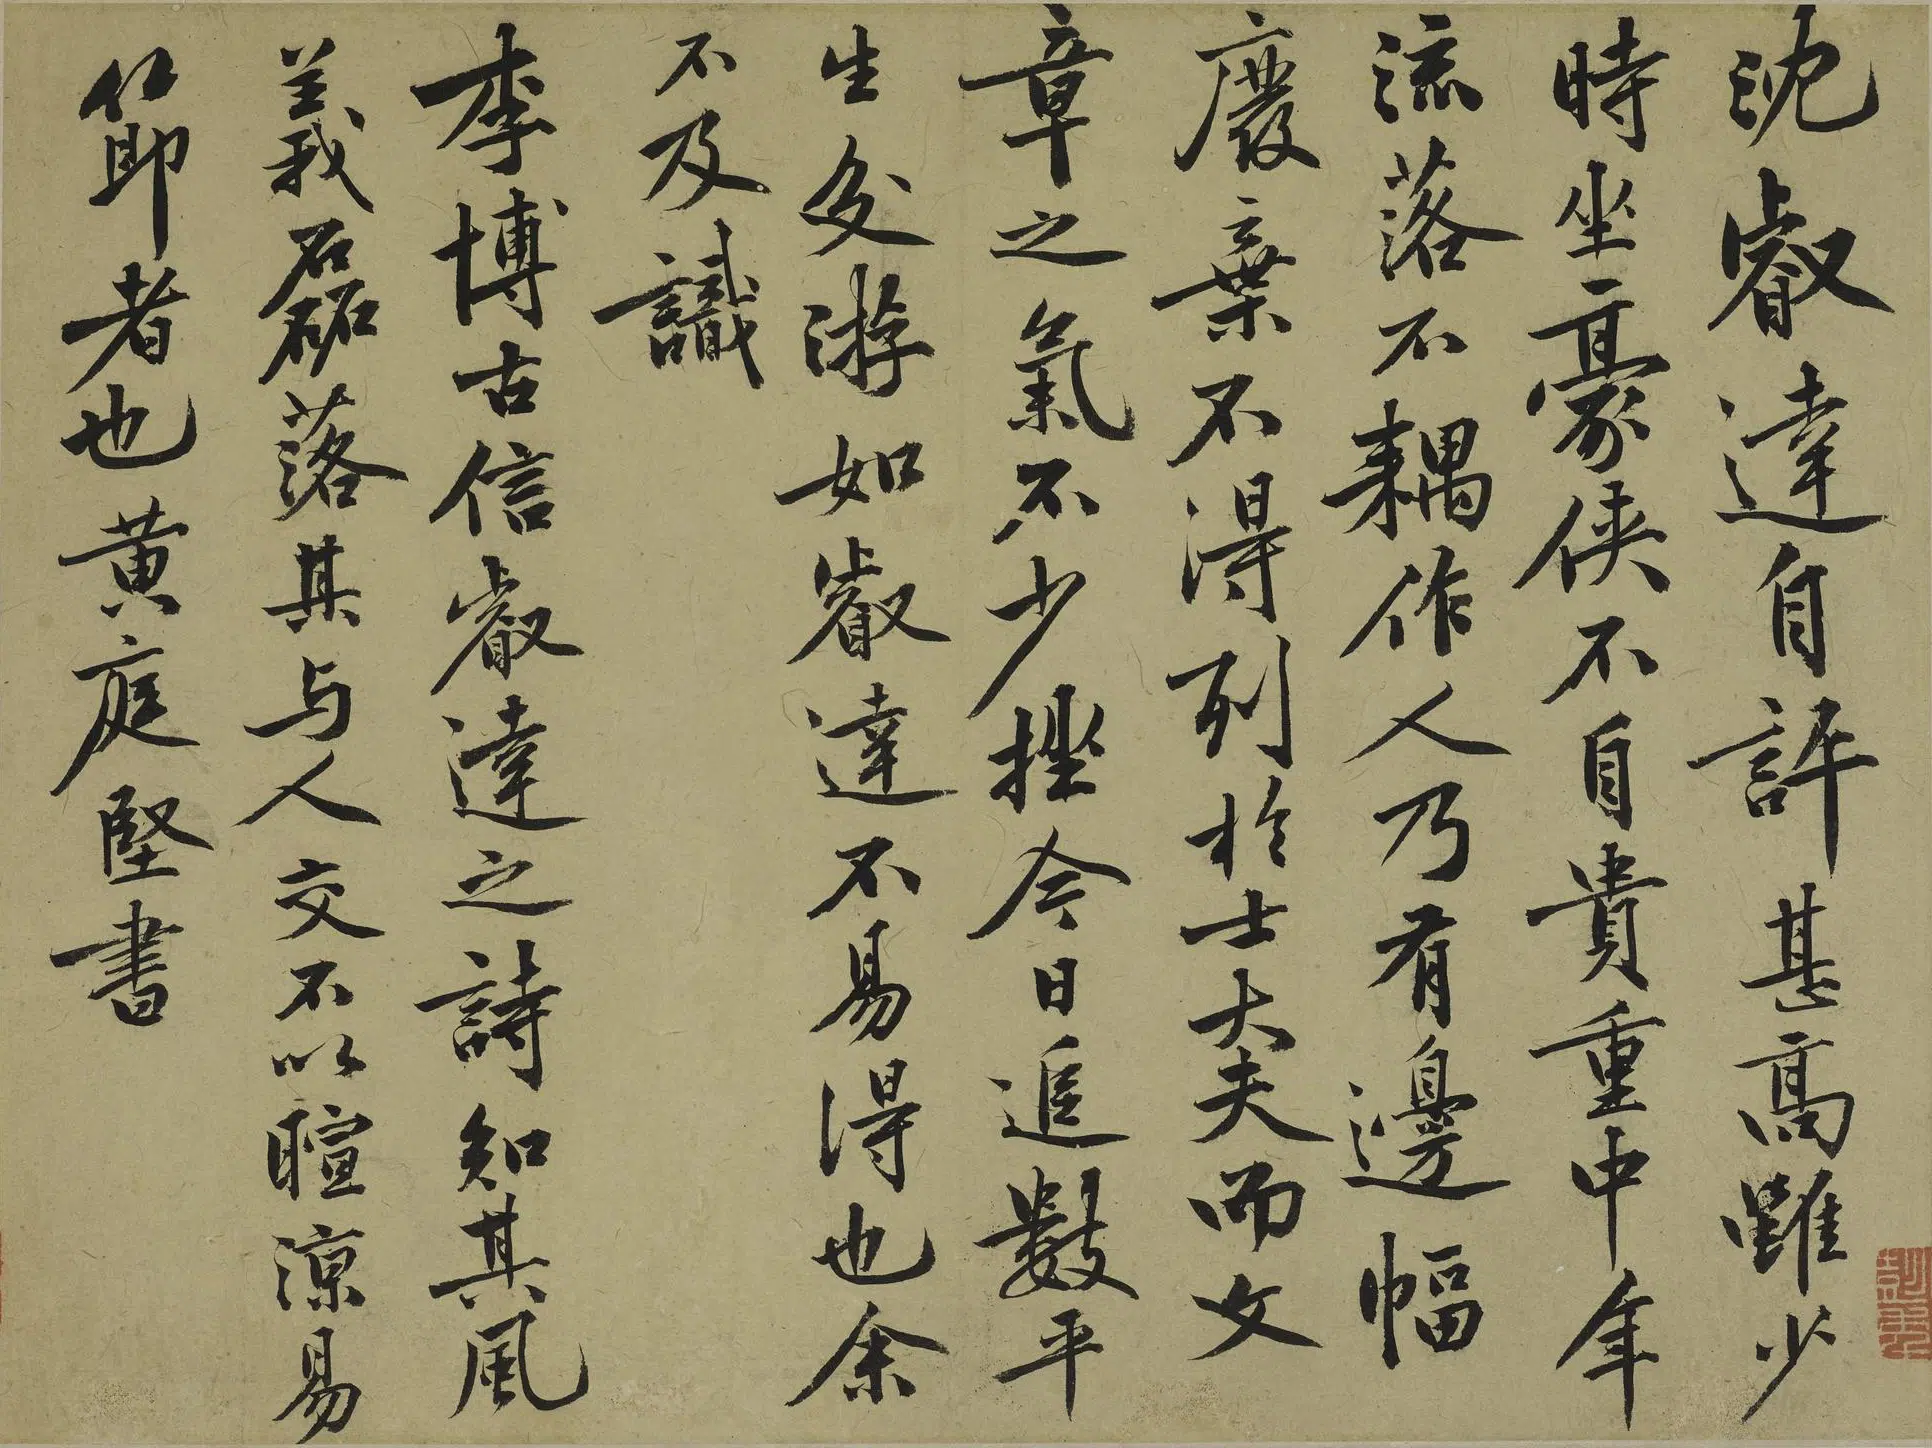 沈叡達自許甚高雖少
時坐豪俠不自貴重中年
流落不耦作人乃有邊幅
廢棄不得列於士大夫而文
章之氣不少挫今日追數平
生交游如叡達不易得也余
不及識
李博古信叡達之詩知其風
義磊落其与人交不以暄涼易
節者也黄庭堅書